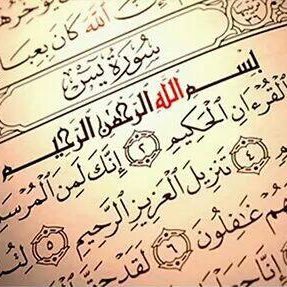 إن الله كان بعبا
سُورَةُ يسٓ
بِسْمِ اللَّهِ الرَّحْمَٰنِ الرَّحِيمِ
الْقُرْءَانِ الْحَكِيمِ ٢ إِنَّكَ لَمِنَ الْمُرْسَلِ
٤ تَنزِيلَ الْعَزِيزِ الرَّحِيمِ ٥ لِتُن
هُمْ غَٰفِلُونَ ٦ لَقَدْ حَقَّ
إِنَّا جَعَ